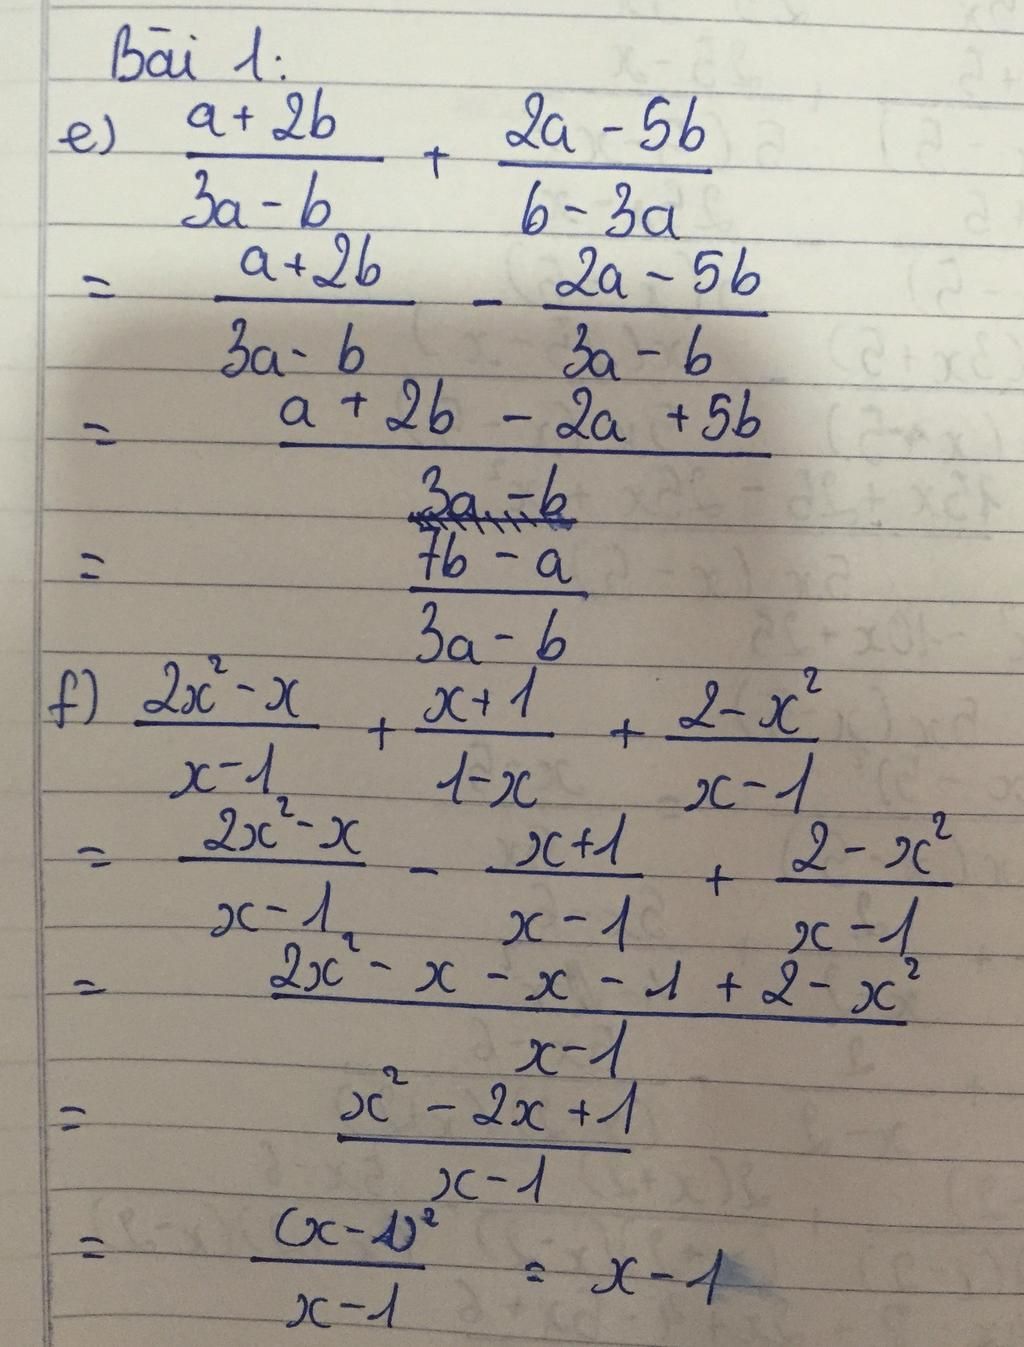 Bài 1:
e) \frac{a+2b}{3a-b} + \frac{2a-5b}{b-3a}
= \frac{a+2b}{3a-b} - \frac{2a-5b}{3a-b}
= \frac{a+2b-2a+5b}{3a-b}
= \frac{7b-a}{3a-b}
f) \frac{2x²-x}{x-1} + \frac{x+1}{1-x} + \frac{2-x²}{x-1}
= \frac{2x²-x}{x-1} - \frac{x+1}{x-1} + \frac{2-x²}{x-1}
= \frac{2x²-x-x-1+2-x²}{x-1}
= \frac{x²-2x+1}{x-1}
= \frac{(x-1)²}{x-1} = x-1